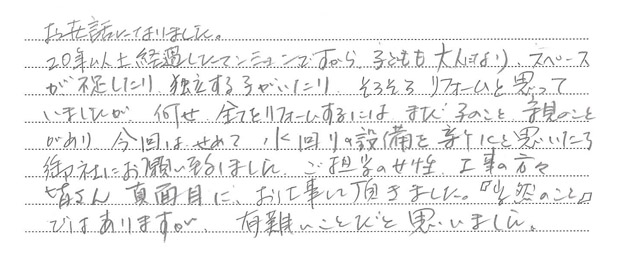 お世話になりました。
20年以上経過したマンションですから、子どもも大人になり、スペース
が不足したり、独立する子がいたり、そろそろリフォームと思って
いましたが、何せ、全てをリフォームするには、まだ子のこと、親のこと
があり、今回は、せめて、水回りの設備を新たにと思いたち
御社にお願い致しました。ご担当の女性、工事の方々
皆さん、真面目に、お仕事して頂きました。『当然のこと』
ではありますが、有難いことだと思いました。